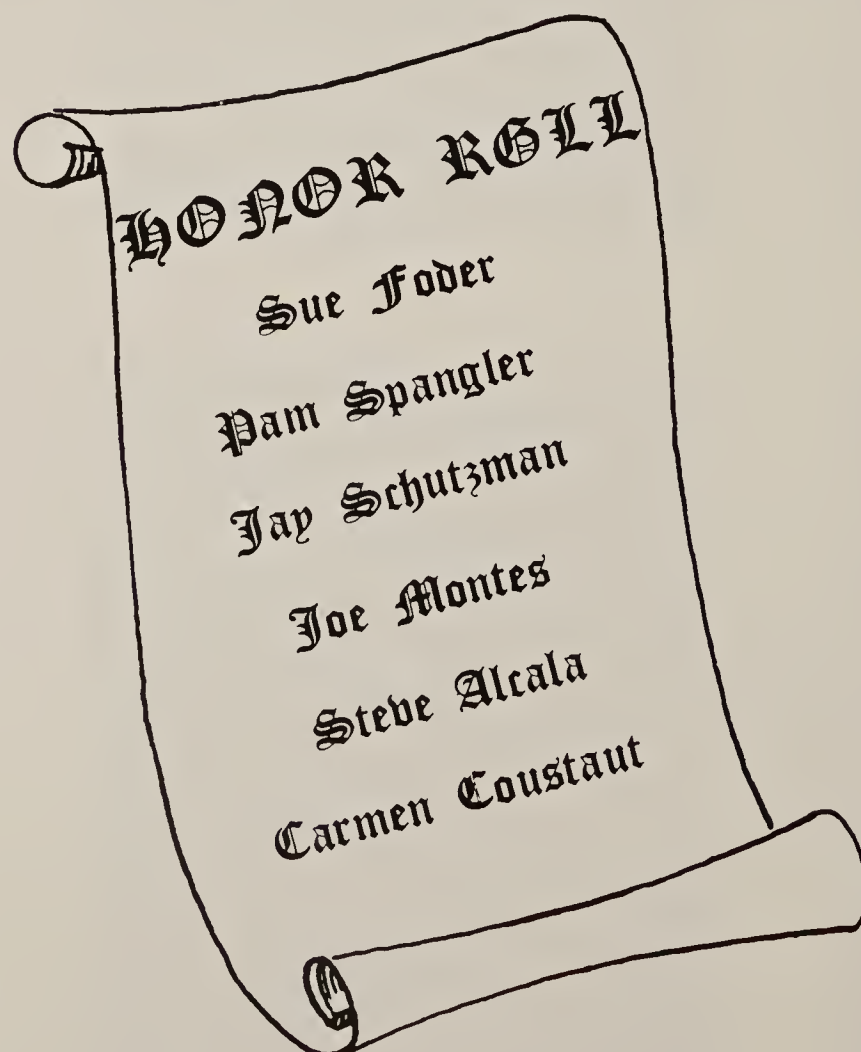 HONOR RGLL
Sue Foder
Pam Spangler
Jay Schutzman
Joe Montes
Steve Alcala
Carmen Coustaut